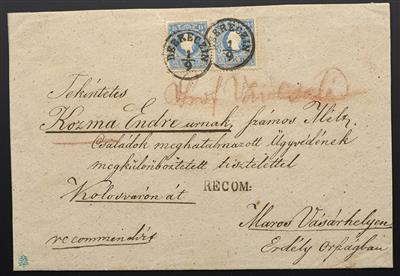 DEBRECZIN
DEBRECZIN
Tekintetes
Kozma Endre urnak, számos Mélt.
Családok meghatalmazott Ügyvédének
megkülönböztetett tisztelettel
Kolosváron át
RECOM:
Maros Vásárhelyen
recommendirt
Erdély Országban